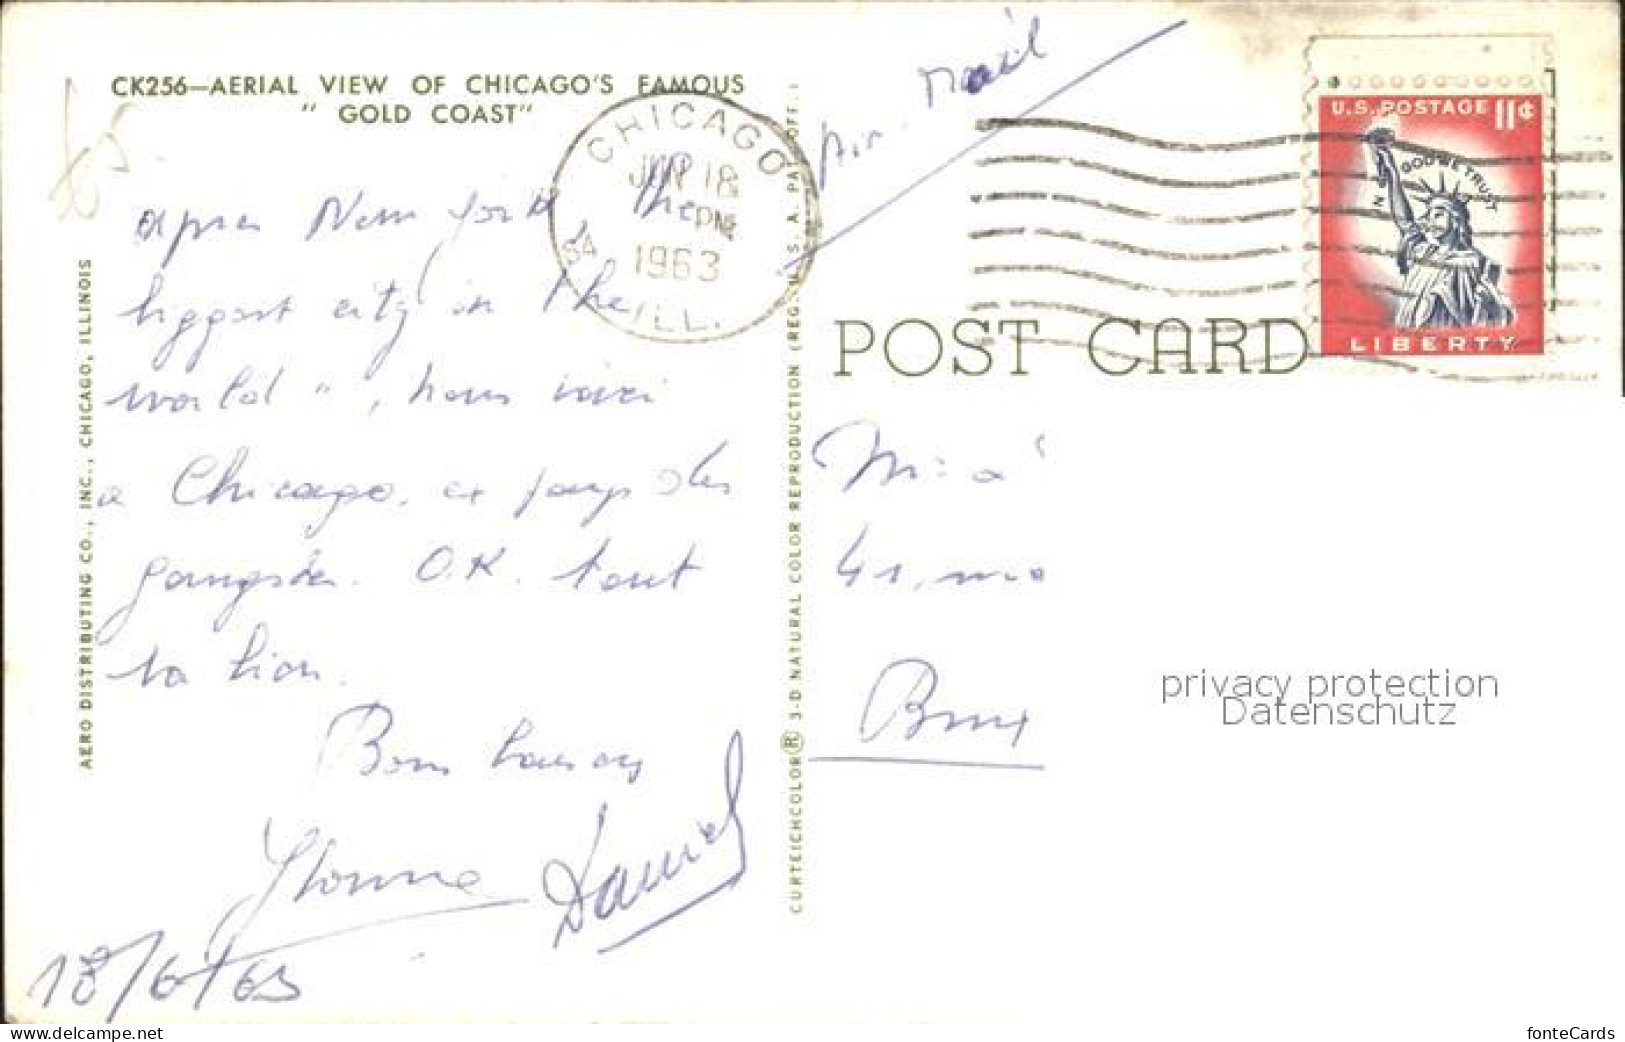 CK256—AERIAL VIEW OF CHICAGO'S FAMOUS
" GOLD COAST"
AERO DISTRIBUTING CO., INC., CHICAGO, ILLINOIS
après New York, " the
biggest city in the
world ", nous voici
a Chicago, le pays des
gangster. O.K. tout
va bien.
Bons baisers
Yvonne Daniel
18/6/63
CURTEICHCOLOR® 3-D NATURAL COLOR REPRODUCTION (REG. U. S. A. PAT. OFF.)
CHICAGO
JUN 18
PM
1963
ILL.
Air-Mail
U.S. POSTAGE 11¢
IN GOD WE TRUST
LIBERTY
POST CARD
41,
Brux
privacy protection
Datenschutz
www.delcampe.net
fonteCards